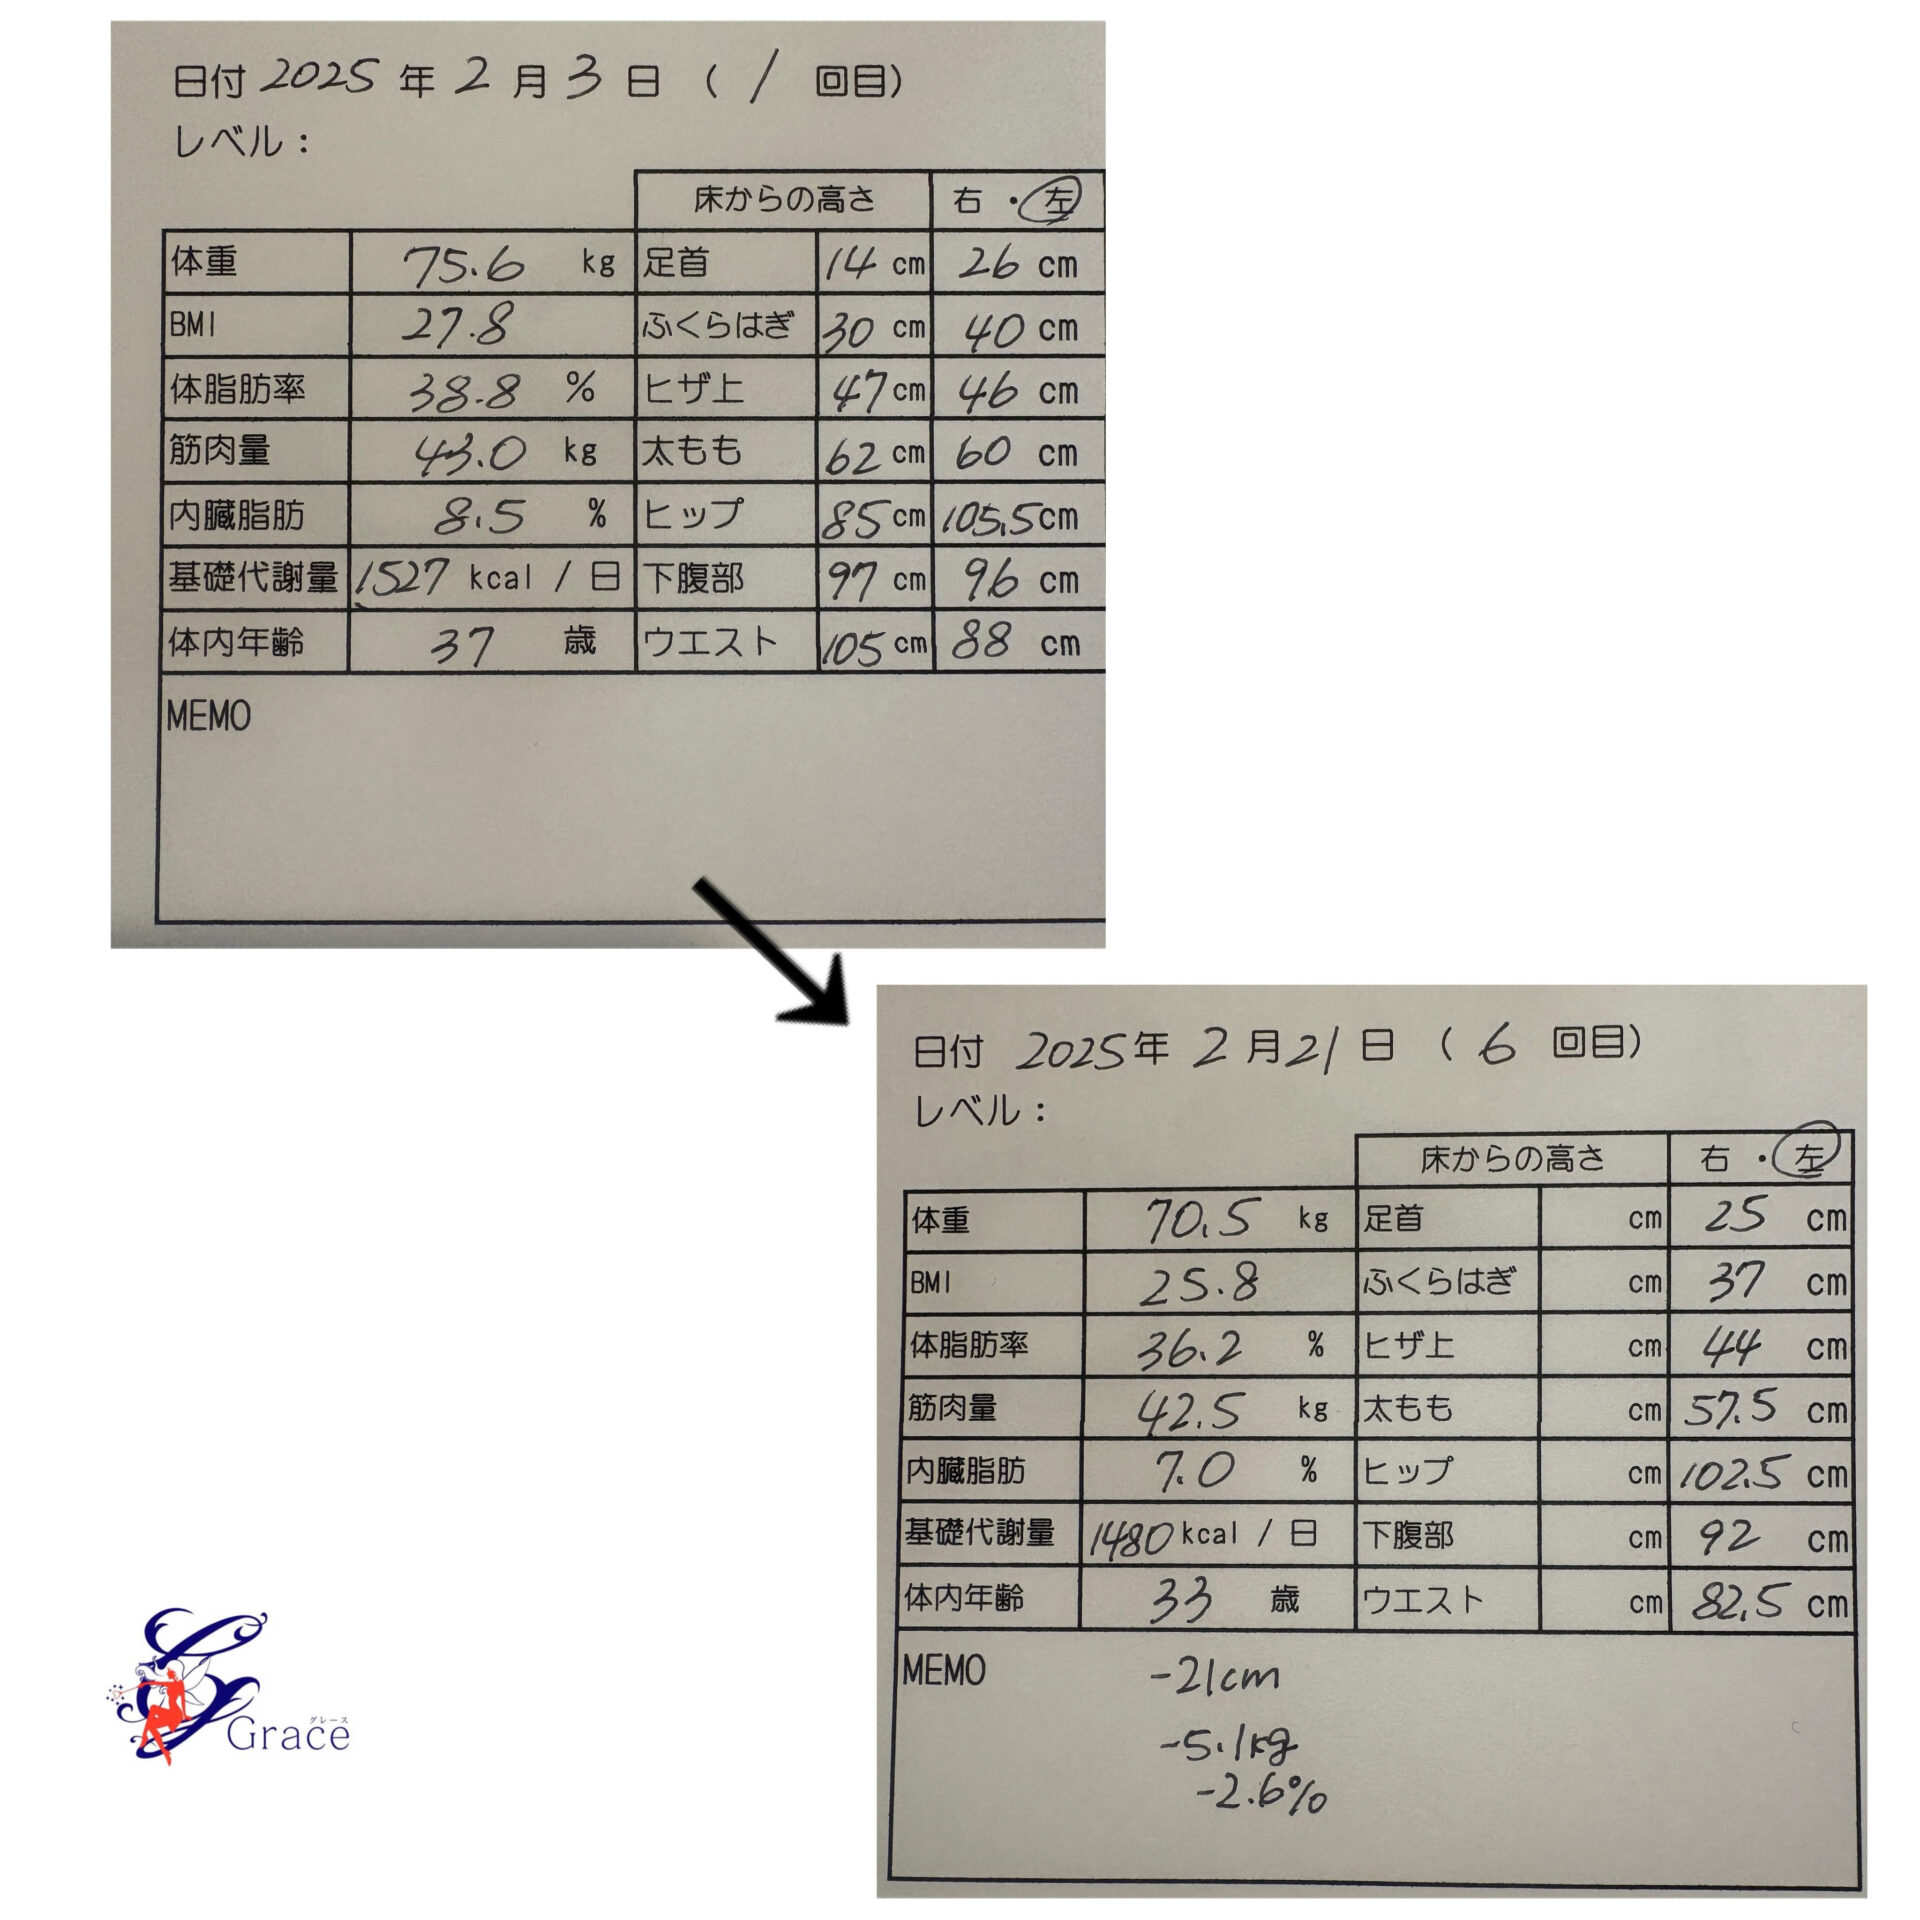 日付 2025 年 2 月 3 日 ( 1 回目)
レベル：
床からの高さ 右・左
体重 75.6 kg 足首 14 cm 26 cm
BMI 27.8 ふくらはぎ 30 cm 40 cm
体脂肪率 38.8 % ヒザ上 47 cm 46 cm
筋肉量 43.0 kg 太もも 62 cm 60 cm
内臓脂肪 8.5 % ヒップ 85 cm 105.5 cm
基礎代謝量 1527 kcal / 日 下腹部 97 cm 96 cm
体内年齢 37 歳 ウエスト 105 cm 88 cm
MEMO
日付 2025 年 2 月 21 日 ( 6 回目)
レベル：
床からの高さ 右・左
体重 70.5 kg 足首 cm 25 cm
BMI 25.8 ふくらはぎ cm 37 cm
体脂肪率 36.2 % ヒザ上 cm 44 cm
筋肉量 42.5 kg 太もも cm 57.5 cm
内臓脂肪 7.0 % ヒップ cm 102.5 cm
基礎代謝量 1480 kcal / 日 下腹部 cm 92 cm
体内年齢 33 歳 ウエスト cm 82.5 cm
MEMO -21cm
-5.1kg
-2.6%
グレース
Grace